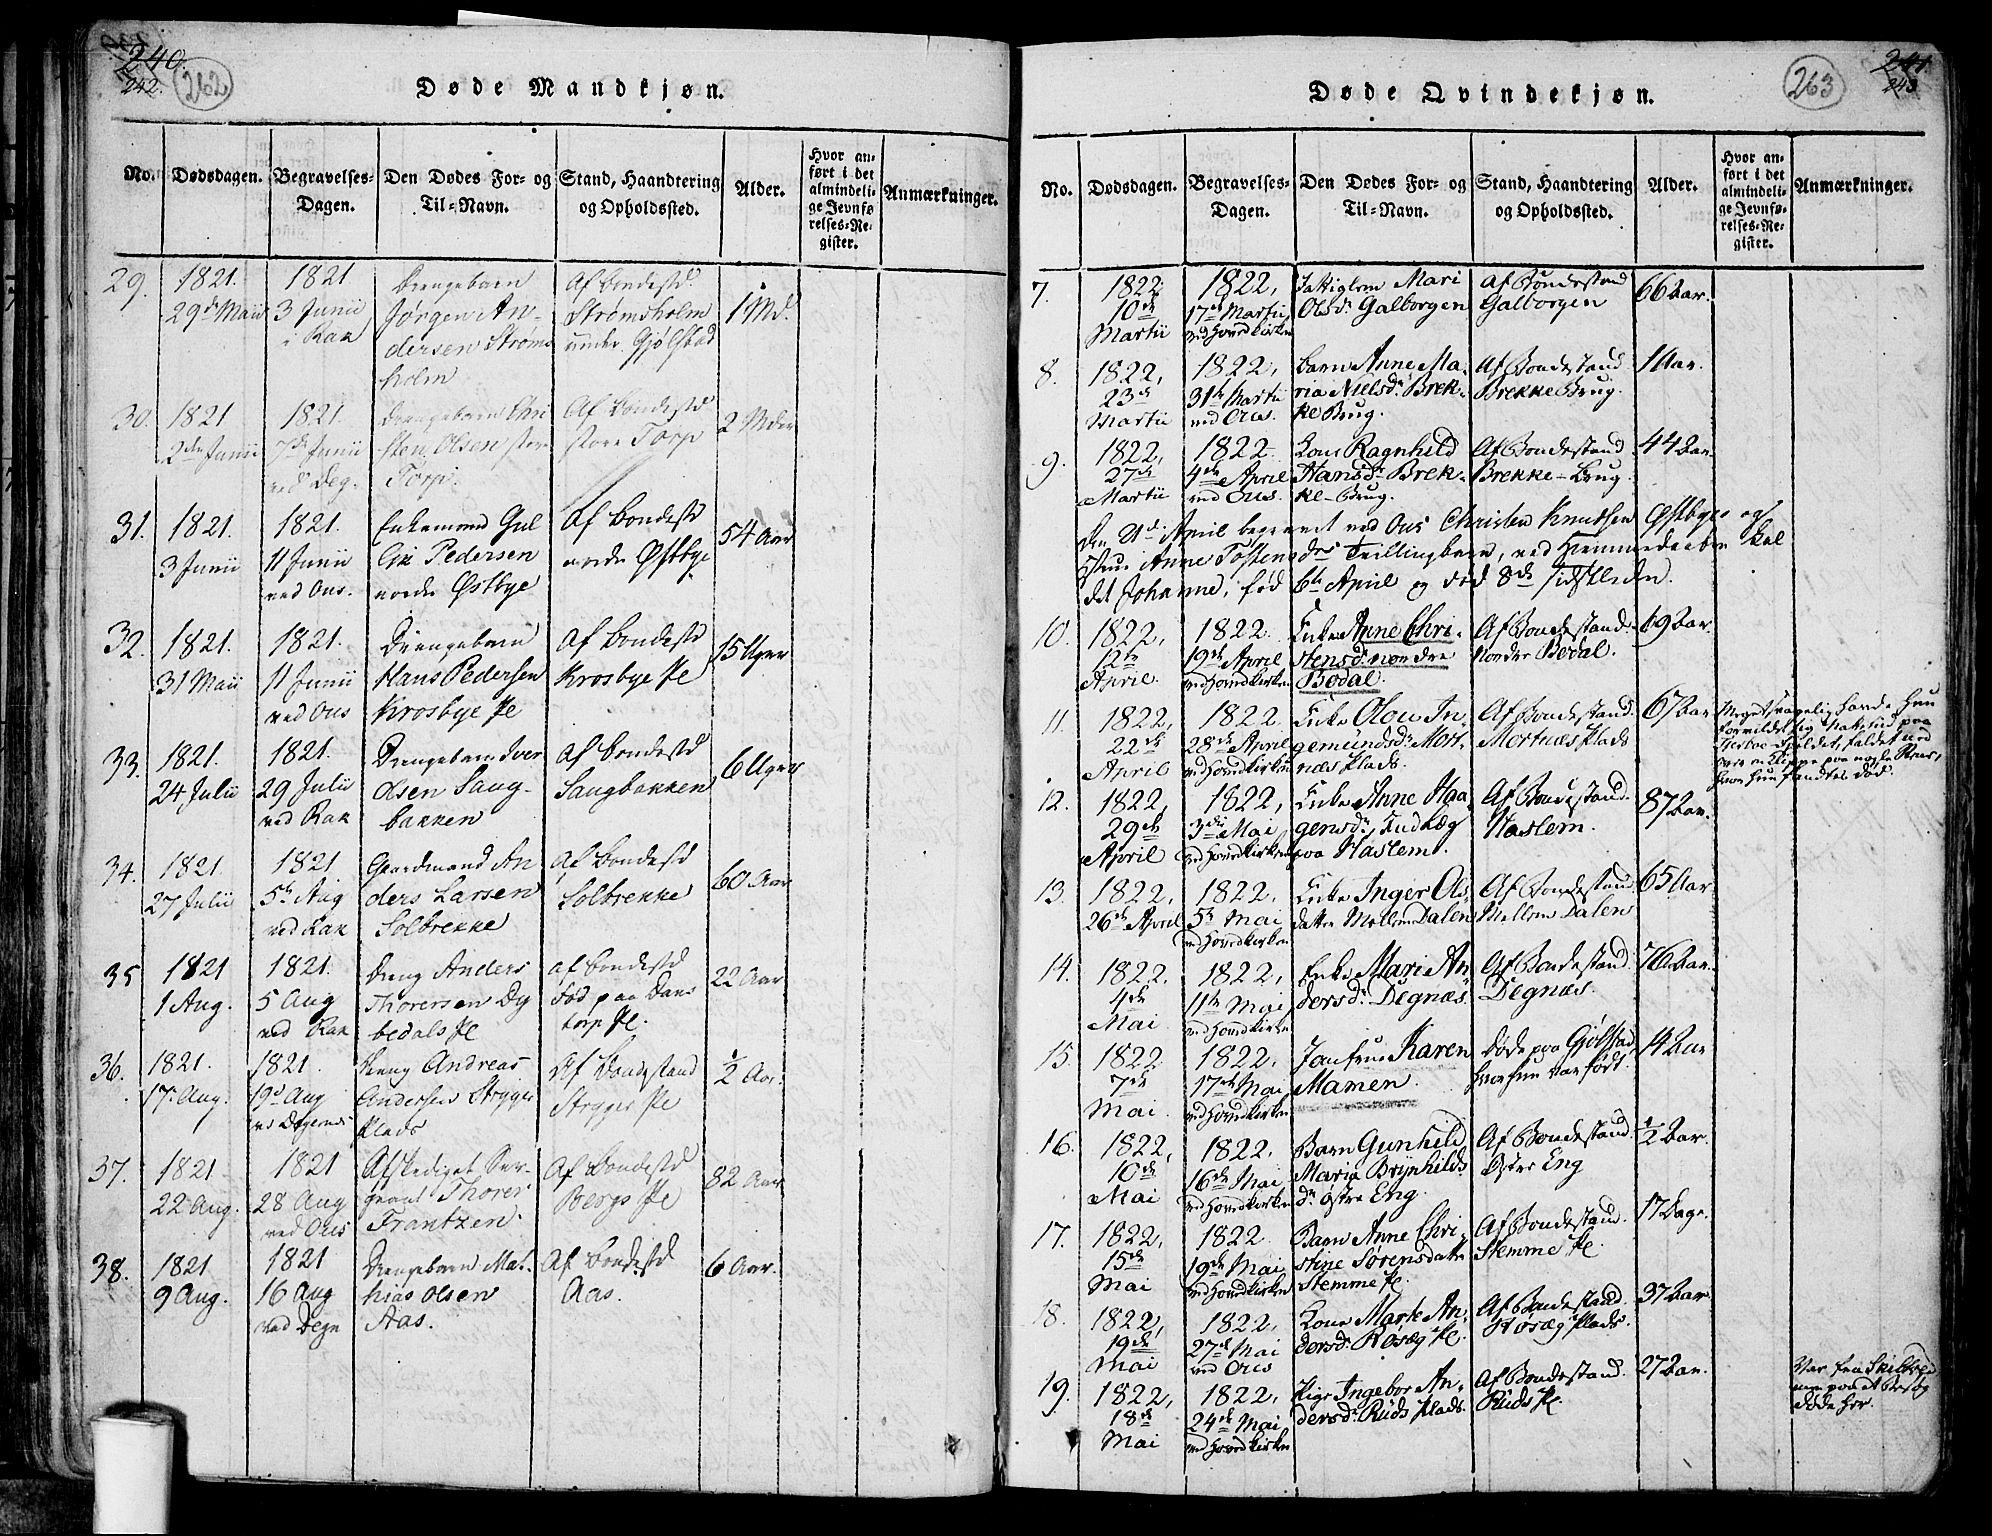 240.
242.
262
Døde Mandkjøn.
No.
Dødsdagen.
Begravelses-
Dagen.
Den Dødes For- og
Til-Navn.
Stand, Haandtering
og Opholdssted.
Alder.
Hvor an-
ført i det
almindeli-
ge Jevnfø-
relses-Re-
gister.
Anmærkninger.
29.
1821.
29de Maii
1821
3 Junii
i Rak
Drengebarn
Jørgen An-
dersen Strøms
holm
Af bondestd
Strømsholm
under Gjølstad
1 Md.
30.
1821
2den Junii
1821.
7de Junii
ved Deg.
Drengebarn Chri
sten Olsen store
Torp.
Af bondestd
store Torp
2 Mder
31.
1821.
3 Junii
1821.
11 Junii
ved Ous.
Enkemand Gul
Pedersen
nordre Østbye
Af bondestd
nordre Østbye
54 Aar
32.
1821.
31 Maii
1821.
11 Junii
ved Ous
Drengebarn
Hans Pedersen
Krosbye Pe
Af bondestd
Krosbye Pe
15 Uger
33.
1821.
24 Julii
1821.
29 Julii
ved Rak
Drengebarn Iver
Olsen Saug-
bakken
Af bondestd
Saugbakken
6 Uger
34.
1821.
27 Julii
1821
5te Aug
ved Rak
Gaardmand An
ders Larsen
Solbrekke
Af bondestd
Solbrekke
60 Aar
35
1821
1 Aug.
1821.
5 Aug
ved Rak
Dreng Anders
Thorersen Dy
bedals Pe
af bondestd
fød paa Dans
torp Pe.
22 Aar
36.
1821.
17. Aug.
1821.
19d Aug
Dreng Andreas
Andersen Stryger
Plads
Af Bondestand
Stryger Pe
½ Aar.
37.
1821.
22 Aug.
1821
28 Aug
ved Ous
Afskediget Ser-
geant Thorer
Frantzen.
Af Bondestd
Bergs Pe
82 Aar
38.
1821
9 Aug.
1821
16 Aug
ved Degn
Drengebarn Mat
hias Olsen
Aas.
Af Bondestd
Aas.
6 Aar.
241
243
263
Døde Qvindekjøn.
No.
Dødsdagen.
Begravelses-
Dagen.
Den Dødes For- og
Til-Navn.
Stand, Haandtering
og Opholdssted.
Alder.
Hvor an-
ført i det
almindeli-
ge Jevnfø-
relses-Re-
gister.
Anmærkninger.
7.
1822
10de
Martii
1822,
17de Martii
ved Hovedkirken
Fattiglem Mari
Olsdr Galborgen
Af Bondestand
Galborgen
66 Aar.
8.
1822,
23de
Martii
1822,
31te Martii
ved Ous.
Barn Anne Ma-
ria Nielsdr Brek-
ke Brug.
Af Bondestand
Brekke Brug.
1 Aar.
9.
1822,
27de
Martii
1822
4de April
ved Ous.
Kone Ragnhild
Hansdr Brek-
ke-Brug.
Af Bondestand
Brekke-Brug
44 Aar.
Den 21de April begravet ved Ous Christen Knudsen Østbyes og
Hstru Anne Tostensdrs Tvillingbarn, ved Hjemmedaaben kal
det Johanne, fød 6te April og død 8de sidstleden.
10.
1822,
12te
April.
1822
19de April
ved Hovedkirken
Enke Anne Chri-
stensdr nordre
Bødal.
Af Bondestand.
Nordre Bødal.
69 Aar.
11.
1822,
22de
April
1822
28de April
ved Hovedkirken
Enke Olou In-
gemundsdr Mort-
næs Plads.
Af Bondestand.
Mortnæs Plads
67 Aar
Meget svagelig havde hun
forvildet sig Nattetid paa
faldet ned
over en Klippe paa nogle
hvor hun fandtes død.
12.
1822,
29de
April
1822,
3die Mai
ved Hovedkirken
Enke Anne Haa
gensdr, Indlæg
paa Haslem.
Af Bondestand.
Haslem.
87 Aar.
13.
1822,
26de April
1822.
5te Mai
ved Hovedkirken
Enke Inger Ols-
datter Mellem Dalen
Af Bondestand
Mellem Dalen
65 Aar
14.
1822.
4de
Mai
1822,
11te Mai
ved Hovedkirken
Enke Mari An
dersdr Degnæs.
Af Bondestand.
Degnæs.
76 Aar.
15.
1822
7de
Mai
1822,
17de Mai
ved Hovedkirken
Jomfrue Karen
Mamen.
Døde paa Gjølstad,
hvor hun var født.
14 Aar
16.
1822,
10de
Mai
1822.
16de Mai
ved Hovedkirken
Barn Gunhild
Maria Brynhilds
dr Østre Eng.
Af Bondestand.
Østre Eng
½ Aar.
17.
1822,
15de
Mai
1822
19de Mai
ved Hovedkirken
Barn Anne Chri-
stine Sørensdatter
Stemme Pe.
Af Bondestand.
Stemme Pe.
17 Dage.
18.
1822,
19de
Mai
1822.
27de Mai
ved Ous
Kone Marte An-
dersdr Rosæg Pe.
Af Bondestand.
Rosæg Plads.
37 Aar.
19.
1822,
18de
Mai
1822.
24de Mai
ved Hovedkirken
Pige Ingebor An-
dersdr Ruds Plads.
Af Bondestand.
Ruds Pe.
27 Aar.
Var fra Skibtvedt
men paa et Besøg
døde her.